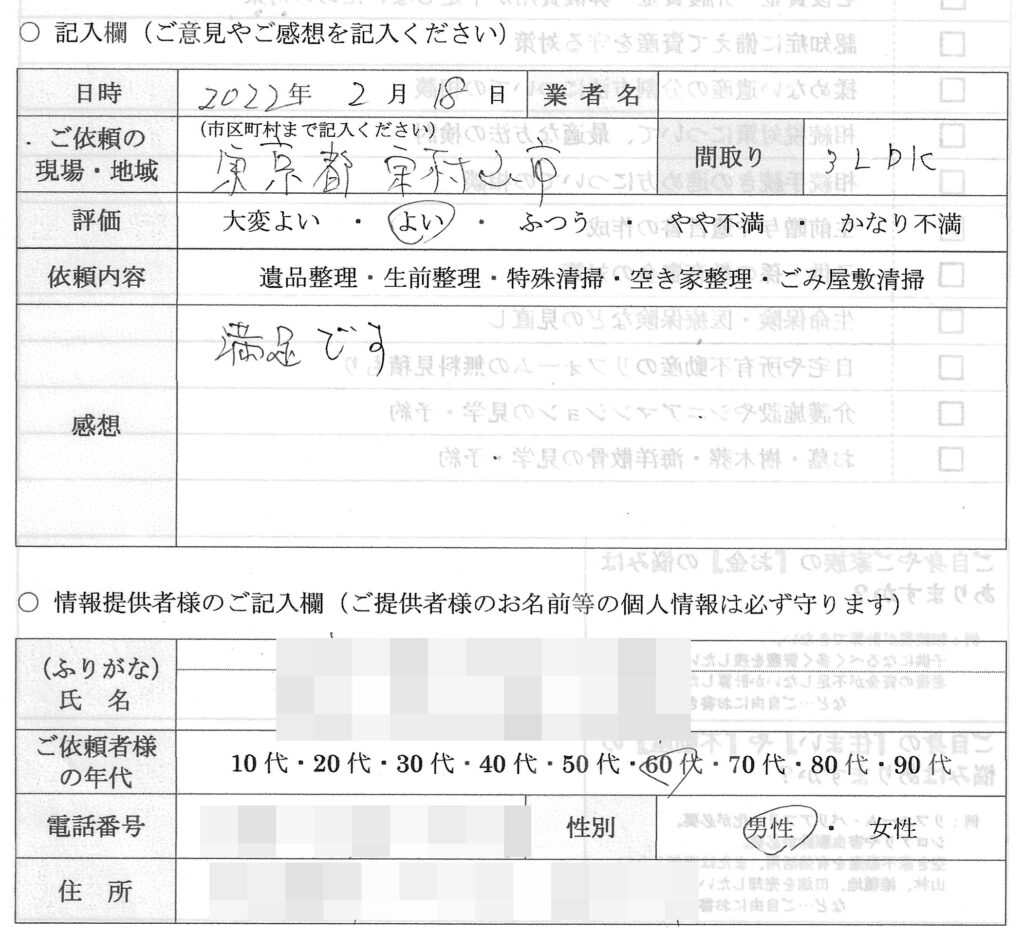 ○ 記入欄（ご意見やご感想を記入ください）
日時 2022年 2月 18日 業者名
ご依頼の現場・地域 （市区町村まで記入ください） 東京都 東村山市 間取り 3LDK
評価 大変よい ・ よい ・ ふつう ・ やや不満 ・ かなり不満
依頼内容 遺品整理・生前整理・特殊清掃・空き家整理・ごみ屋敷清掃
感想 満足です
○ 情報提供者様のご記入欄（ご提供者様のお名前等の個人情報は必ず守ります）
（ふりがな）
氏 名
ご依頼者様の年代 10代・20代・30代・40代・50代・60代・70代・80代・90代
電話番号 性別 男性 ・ 女性
住 所